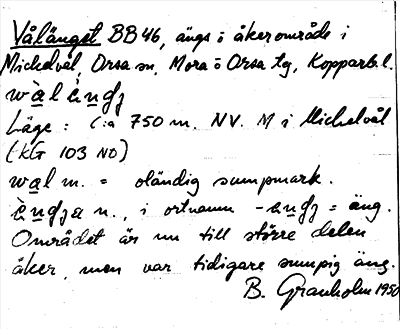 Vålänget BB 46, ängs o åkerområde i
Michelvål, Orsa sn, Mora o Orsa tg, Kopparb.l.
Läge: C:a 750 m. NV. M i Michelvål
(KG 103 NO)
wạl m. = oländig sumpmark.
n., i ortnamn = äng.
Området är nu till större delen
åker, men var tidigare sumpig äng.
B. Granholm 1950